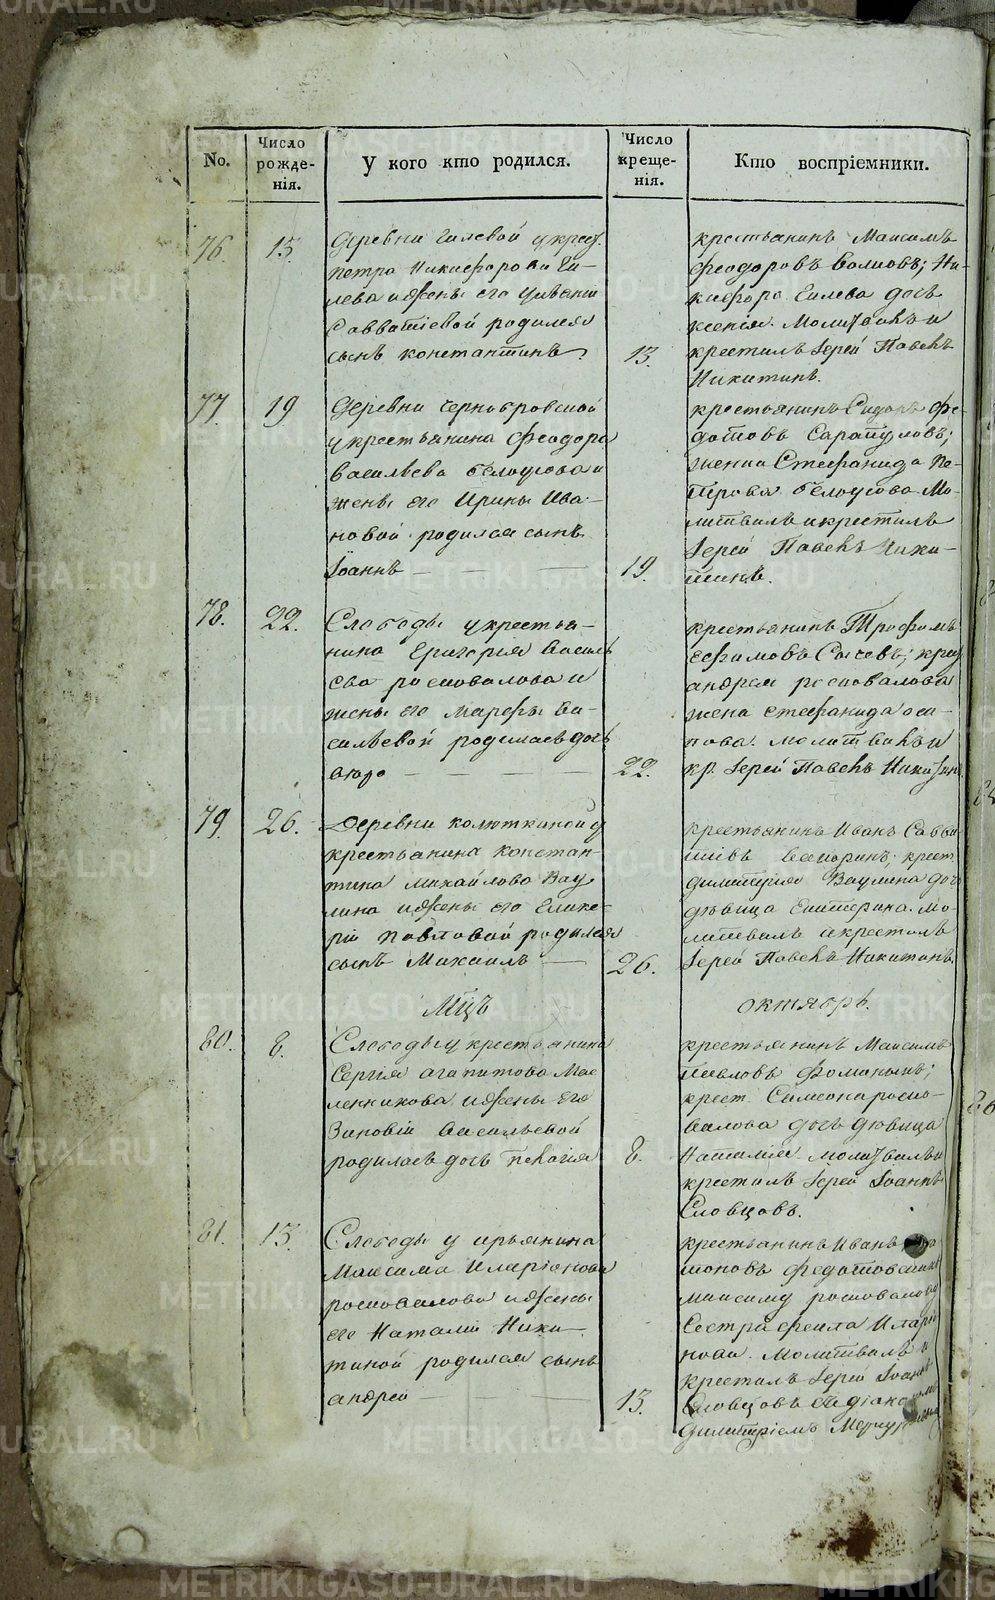 No.
Число рожде-
нія.
У кого кто родился.
Число креще-
нія.
Кто воспріемники.
76.
13.
деревни Гилевой у крест.
петра Никифорова Ги-
лева и жены его
Савватіевой родился
сынъ константинъ.
13.
крестьянинъ Максимъ
феодоровъ Волковъ; Ни-
кифора Гилева дочь
ксенія. Молитвилъ и
крестилъ Іерей Павелъ
Никитинъ.
77.
19
Деревни Чернобровской
у крестьянина феодора
васильева белоусова и
жены его Ирины Ива-
новой родился сынъ
Іоаннъ
19.
крестьянинъ Сидоръ фе-
дотовъ Сарапуловъ;
женка Стефанида Пе-
трова белоусова. Мо-
литвилъ и крестилъ
Іерей Павелъ Ники-
тинъ.
78.
22.
Слободы у крестья-
нина Григорія Василь
ева росковалова и
жены его Марфы Ва-
сильевой родилась дочь
22.
крестьянинъ Трофимъ
ефимовъ Сысевъ; крес
андрея росковалова
жена стефанида оси-
пова. молитвилъ и
кр. Іерей Павелъ Никитинъ
79
26.
Деревни колюткиной у
крестьянина констан-
тина михайлова Вау
лина и жены его Глике-
ріи Павловой родился
сынъ Михаилъ
26.
крестьянинъ Иванъ Савва
тіевъ; крест.
димитрія Ваулина доч
дѣвица Екатерина. Мо-
литвилъ и крестилъ
Іерей Павелъ Никитинъ.
Мцъ
октябрь.
80.
8.
Слободы у крестьянина
Сергія агапитова Мас
ленникова и жены его
Зиновіи Васильевой
родилась дочь Пелагія
8.
крестьянинъ Максимъ
павловъ фоминыхъ;
крест. Симеона роско-
валова дочь дѣвица
Наталія. молитвилъ и
крестилъ Іерей Іоаннъ
Словцовъ.
81.
13.
Слободы у крьянина
Максима Иларіонова
росковалова и жены
его Наталіи Ники-
тиной родился сынъ
андрей
13.
крестьянинъ Иванъ
федотовскихъ
максиму росковалову
Сестра Иларіо
нова. Молитвилъ и
крестилъ Іерей Іоаннъ
Словцовъ съ діакономъ
димитріемъ
METRIKI.GASO-URAL.RU